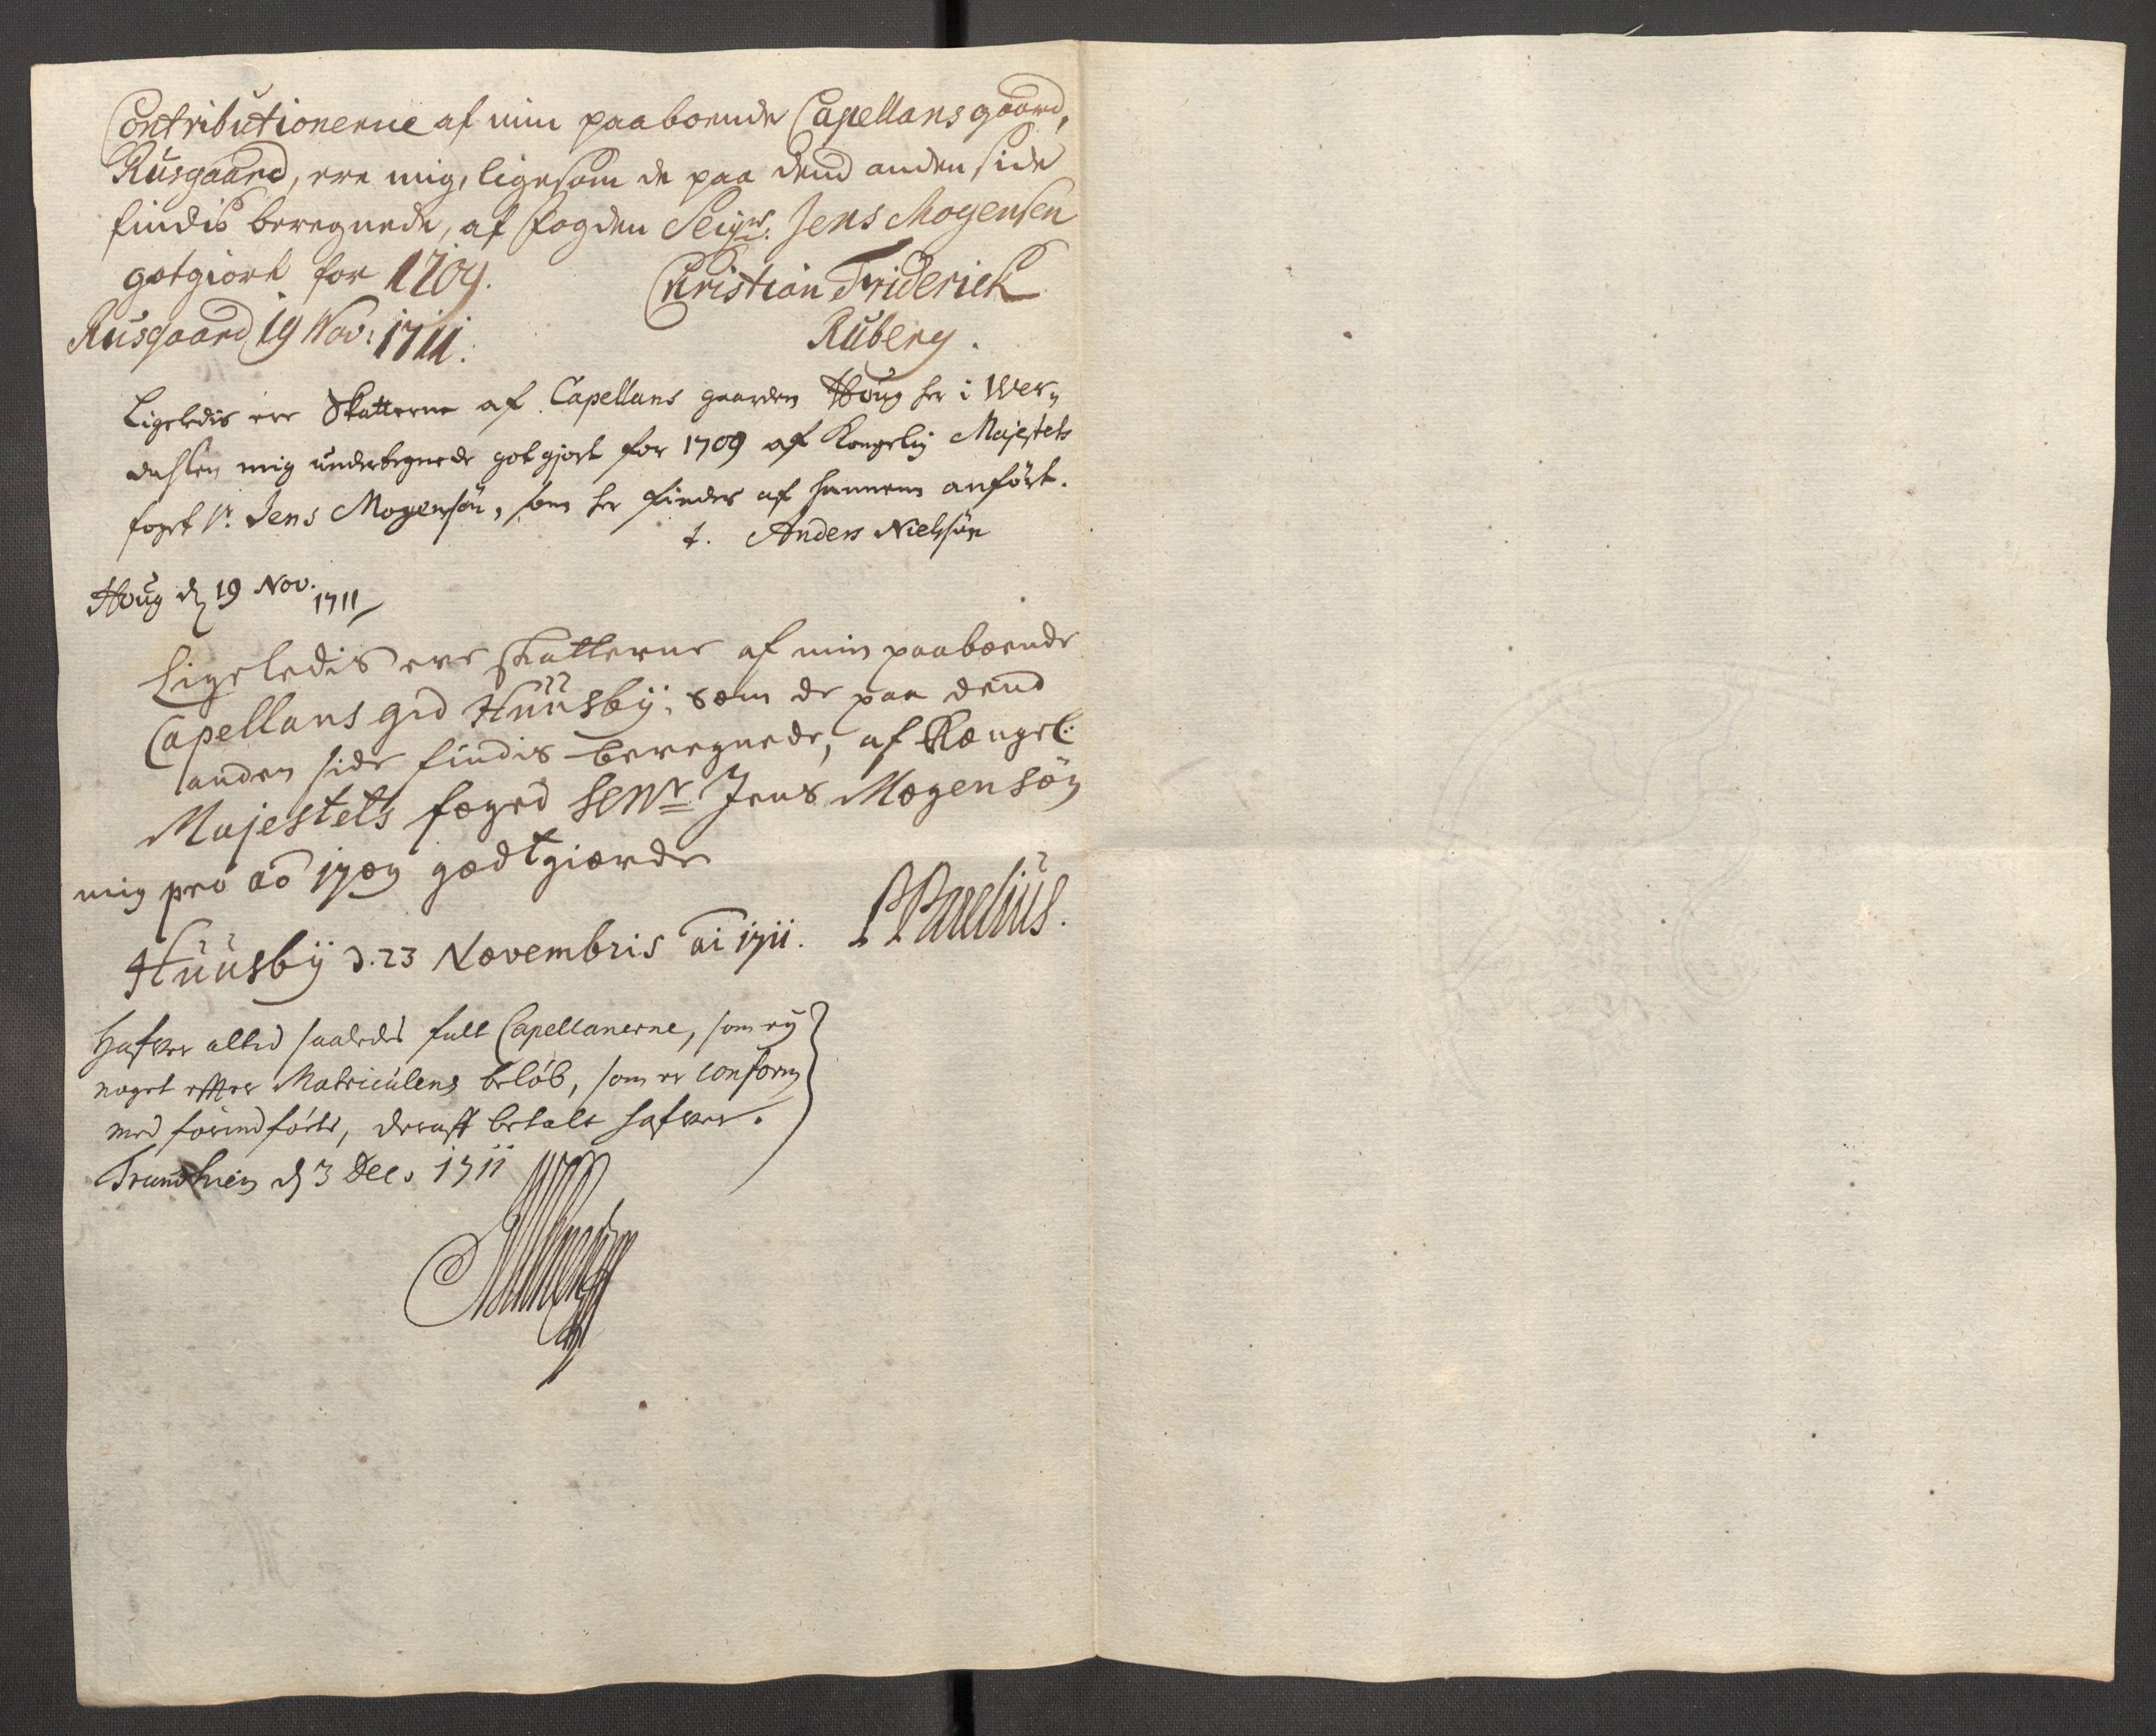 Contributionerne af min paaboende Capellans gaard,
Rusgaard, ere mig, ligesom de paa dend anden side
findis beregnede, af fogden Seigr. Jens Mogensen
gotgiort for 1709. Christian Friderich
Rusgaard 19 Nov: 1711. Ruberg.
Ligeledis ere Skatterne af Capellans gaarden Houg her i Wer-
dahlen mig undertegnede gotgjort for 1709 af Kongelig Majestets
foget Sr. Jens Mogensøn, som her findes af hannem anført.
t. Anders Nielssøn
Houg d 19 Nov. 1711
Ligeledis ere skatterne af min paaboende
Capellans grd Huusbÿ, som de paa dend
anden side findis beregnede, af Kongel:
Majestets foged Senr Jens Mogensøn
mig pro ao 1709 godtgiorde
Huusbÿ d. 23 Novembris ai 1711. Parelius.
Hafver altid saaledes fult Capellanerne, som eÿ
noget efter Matriculens beløb, som er conform
med forindførte, deraff betalt hafver.
Trundhiem d 3 Dec. 1711